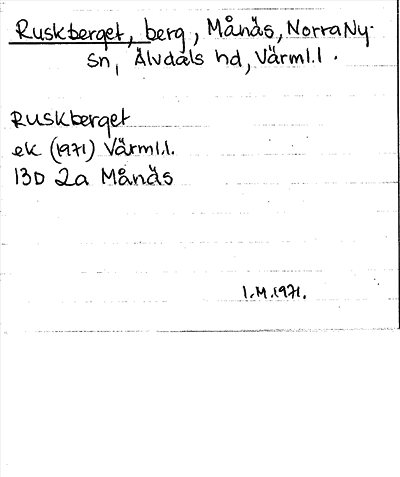 Ruskberget, berg, Månäs, Norra Ny.
Sn, Älvdals hd, Värml.l.
Ruskberget
ek (1971) Värml.l.
13D 2a Månäs
I.M.1971.